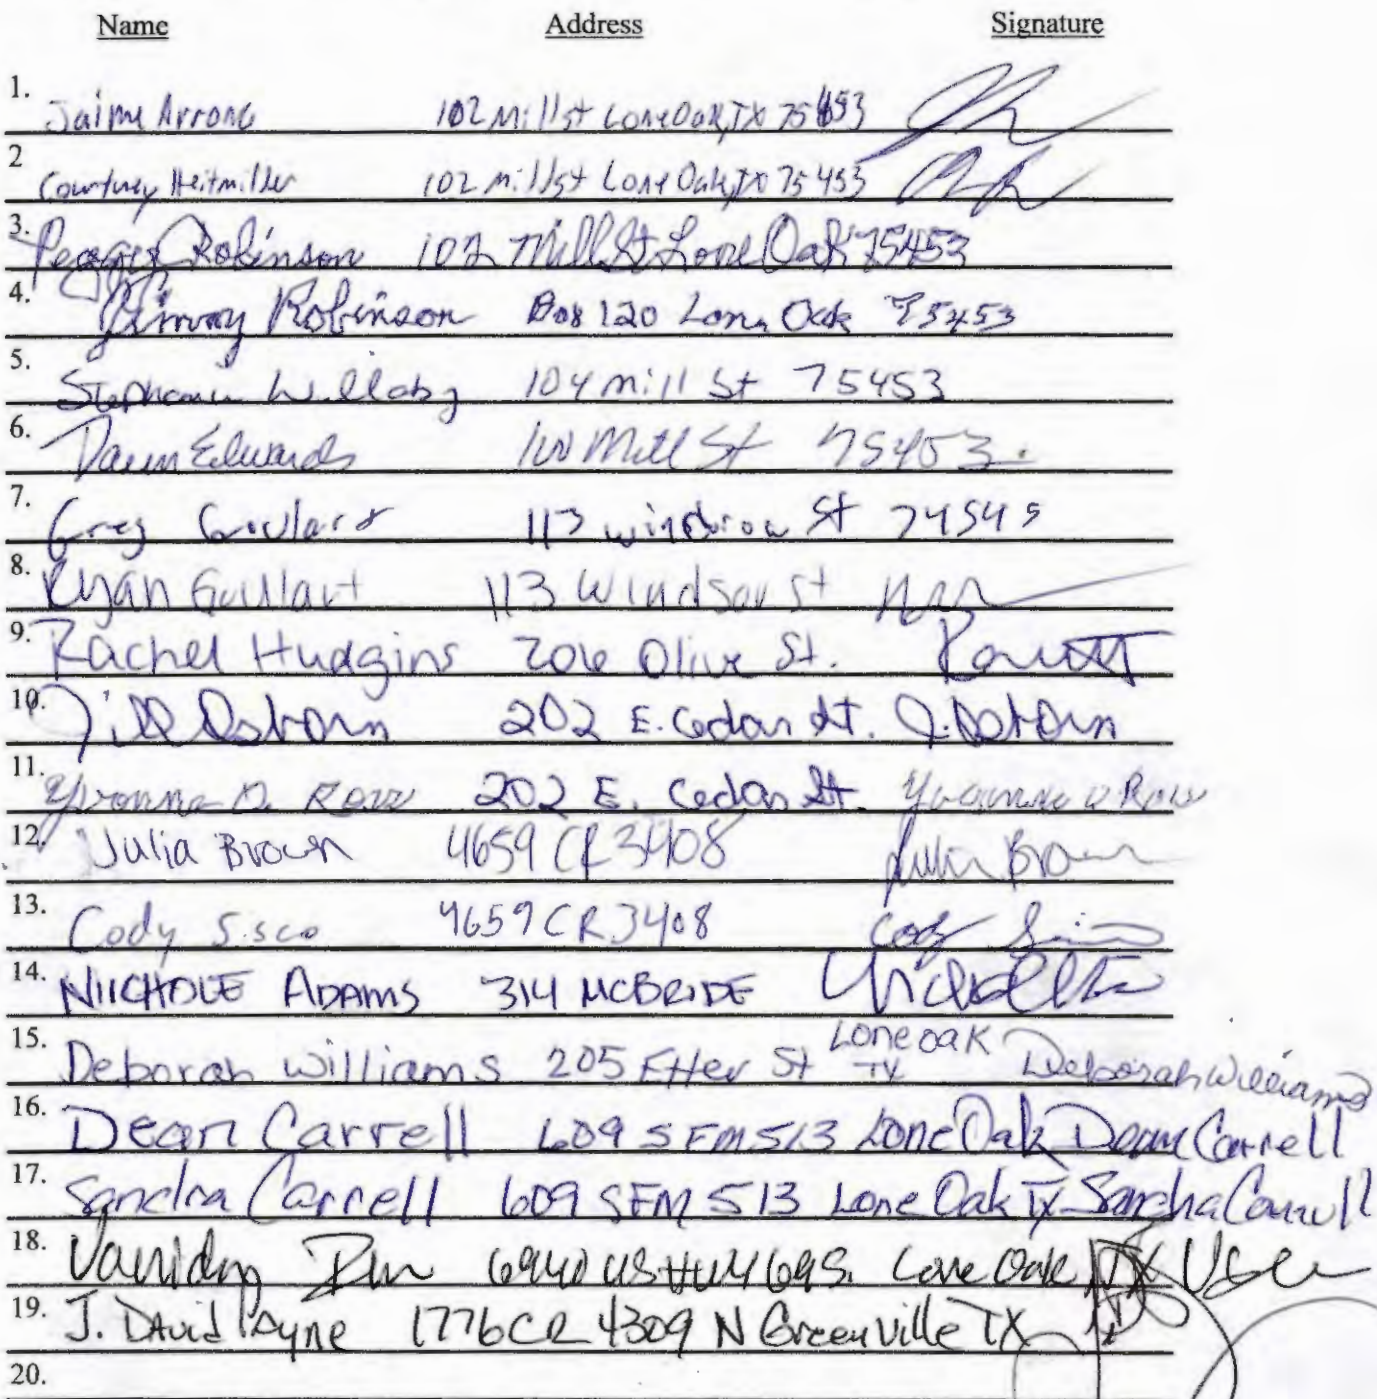 Name Address Signature
1. Jaime Arrano 102 Mill st Lone Oak, TX 75453
2 Courtney Heitmiller 102 Mill st Lone Oak, TX 75453
3. Peggy Robinson 102 Mill St Lone Oak 75453
4. Jimmy Robinson Box 120 Lone Oak 75453
5. Stephanie Willaby 104 Mill St 75453
6. Edwards Mill St 75453.
7. Greg 113 St 74545
8. Ryan 113 Windsor St
9. Rachel Hudgins 206 Olive St.
10. Jill Osborn 202 E. Cedar St. J. Osborn
11. Yvonne D. 202 E. Cedar St. Yvonne D
12. Julia Brown 4659 CR 3408 Julia Brown
13. Cody Sisco 4659 CR 3408 Cody
14. NIICHOLE ADAMS 314 MCBRIDE
15. Deborah Williams 205 Etter St Lone oak TX Deborah Williams
16. Dean Carrell 609 S FM 513 Lone Oak Dean Carrell
17. Sandra Carrell 609 S FM 513 Lone Oak TX Sandra Carrell
18. 6940 US HWY 69 S. Lone Oak TX
19. J. David Payne 1776 CR 4309 N Greenville TX
20.